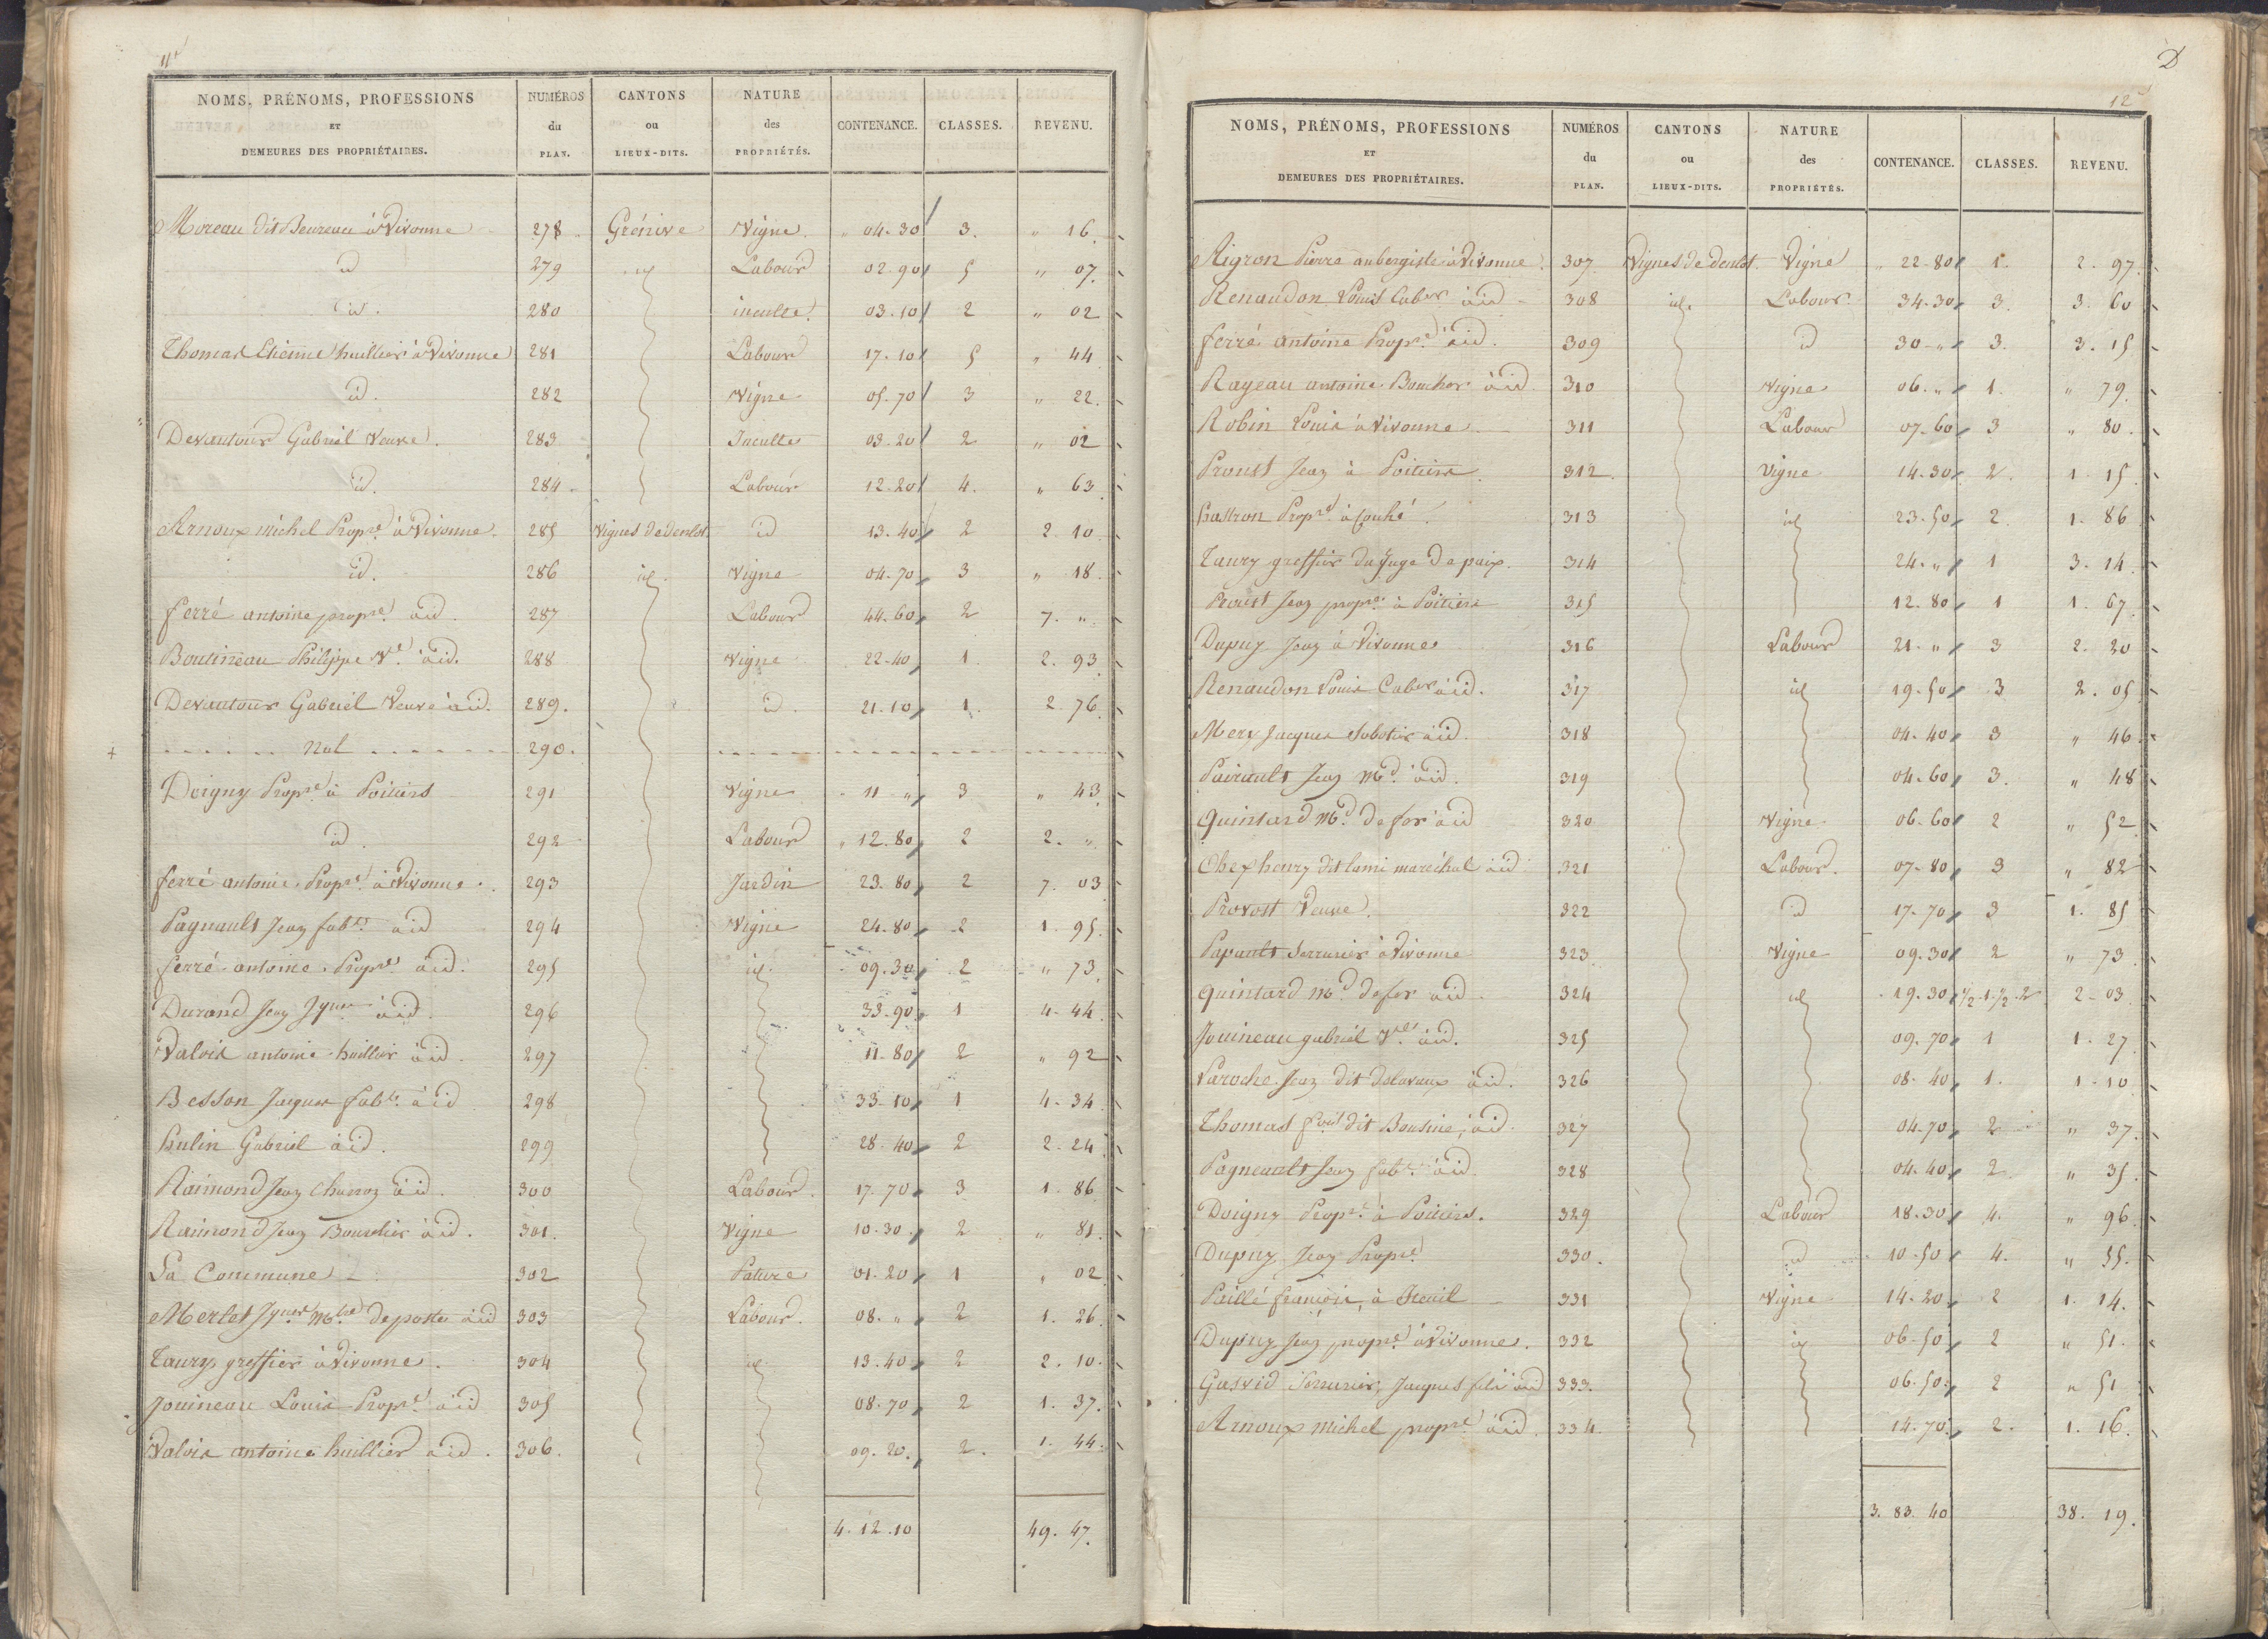 11
NOMS, PRÉNOMS, PROFESSIONS ET DEMEURES DES PROPRIÉTAIRES. NUMÉROS du PLAN. CANTONS ou LIEUX-DITS. NATURE des PROPRIÉTÉS. CONTENANCE. CLASSES. REVENU.
Moreau dit Beureau à Vivonne 278 Grénive Vigne " 04.30 3. " 16
id 279 id Labour 02.90 5 " 07
id. 280 inculte 03.10 2 " 02
Thomas Etienne huillier à Vivonne 281 Labour 17.10 5 " 44
id. 282 Vigne 05.70 3 " 22
Devantour Gabriel Veuve. 283 Inculte 03.20 2 " 02
id. 284 Labour 12.20 4. " 63
Arnoux michel Propre à Vivonne. 285 Vignes de denlot id 13.40 2 2. 10
id. 286 id. Vigne 04.70 3 " 18
ferré antoine propre à id. 287 Labour 44.60 2 7. "
Boutineau Philippe Ve à id. 288 Vigne 22.40 1. 2. 93
Devantour Gabriel Veuve à id. 289. id. 21.10 1. 2. 76
Nul 290.
Doigny Propre à Poitiers 291 Vigne 11 " 3 " 43
id. 292 Labour " 12.80 2 2. "
ferré antoine Propre à Vivonne. 293 Jardin 23.80 2 7. 03
Pagnault Jean fabt à id 294 Vigne 24.80 2 1. 95
ferré antoine Propre à id. 295 id. 09.30 2 " 73
Durand Jean Jques à id. 296 33.90 1 4. 44
Valois antoine huillier à id. 297 11.80 2 " 92
Besson Jacques fabt à id 298 33.10 1 4. 34
hulin Gabriel à id. 299 28.40 2 2. 24
Raimond Jean Charron à id. 300 Labour. 17.70 3 1. 86
Raimond Jean Bourelier à id. 301. Vigne 10.30 2 " 81
La Commune 302 Pature 01.20 1 " 02
Merlet Jques Mtre de poste à id 303 Labour. 08. " 2 1. 26
Taury greffier à Vivonne. 304 id 13.40 2 2. 10.
Jouineau Louis Propre à id 305 08.70 2 1. 37.
Valois antoine huillier à id. 306. 09.20. 2. 1. 44.
4.12.10 49. 47.
D
12
NOMS, PRÉNOMS, PROFESSIONS ET DEMEURES DES PROPRIÉTAIRES. NUMÉROS du PLAN. CANTONS ou LIEUX-DITS. NATURE des PROPRIÉTÉS. CONTENANCE. CLASSES. REVENU.
Aigron Pierre aubergiste à Vivonne 307 Vignes de denlot. Vigne " 22.80 1. 2. 97
Renaudon Louis à id 308 id. Labour 34.30 3. 3. 60
ferré antoine Propre à id. 309 id 30. " 3. 3. 15
Rageau antoine Boucher à id 310 Vigne 06. " 1. " 79
Robin Louis à Vivonne 311 Labour 07.60 3 " 80
Proust Jean à Poitiers 312. Vigne 14.30 2. 1. 15
Propre à Couhé 313 id 23.50 2. 1. 86
Taury greffier du Juge de paix. 314 24. " 1 3. 14
Proust Jean propre à Poitiers 315 12.80 1 1. 67
Dupuy Jean à Vivonne 316 Labour 21. " 3 2. 20
Renaudon Louis à id. 317 id 19.50 3 2. 05
Mery Jacques Sabotier à id. 318 04.40 3 " 46
Pairault Jean Md à id. 319 04.60 3. " 48
Quintard Md de fer à id 320 Vigne 06.60 2 " 52
henry dit lami maréchal à id 321 Labour. 07.80 3 " 82
Provost Veuve. 322 id 17.70 3 1. 85
Papault Serrurier à Vivonne 323 Vigne 09.30 2 " 73
Quintard Md de fer à id 324 id 19.30 1/2.1.1/2.2 2. 03
Jouineau gabriel à id. 325 09.70 1 1. 27
Laroche Jean dit delavaux à id. 326 08.40 1. 1. 10
Thomas dit Bousine, à id. 327 04.70 2 " 37
Pagneault Jean fabt à id. 328 04.40 2 " 35
Doigny Propre à Poitiers. 329 Labour 18.30 4. " 96
Dupuy Jean Propre 330. id 10.50 4. " 55
Paillé françois, à Iteuil 331 Vigne 14.20 2 1. 14.
Dupuy Jean propre à Vivonne. 332 id 06.50 2 " 51.
Serrurier, Jacques fils à id 333. 06.50 2 " 51
Arnoux michel propre à id. 334. 14.70. 2. 1. 16.
3.83.40 38. 19.